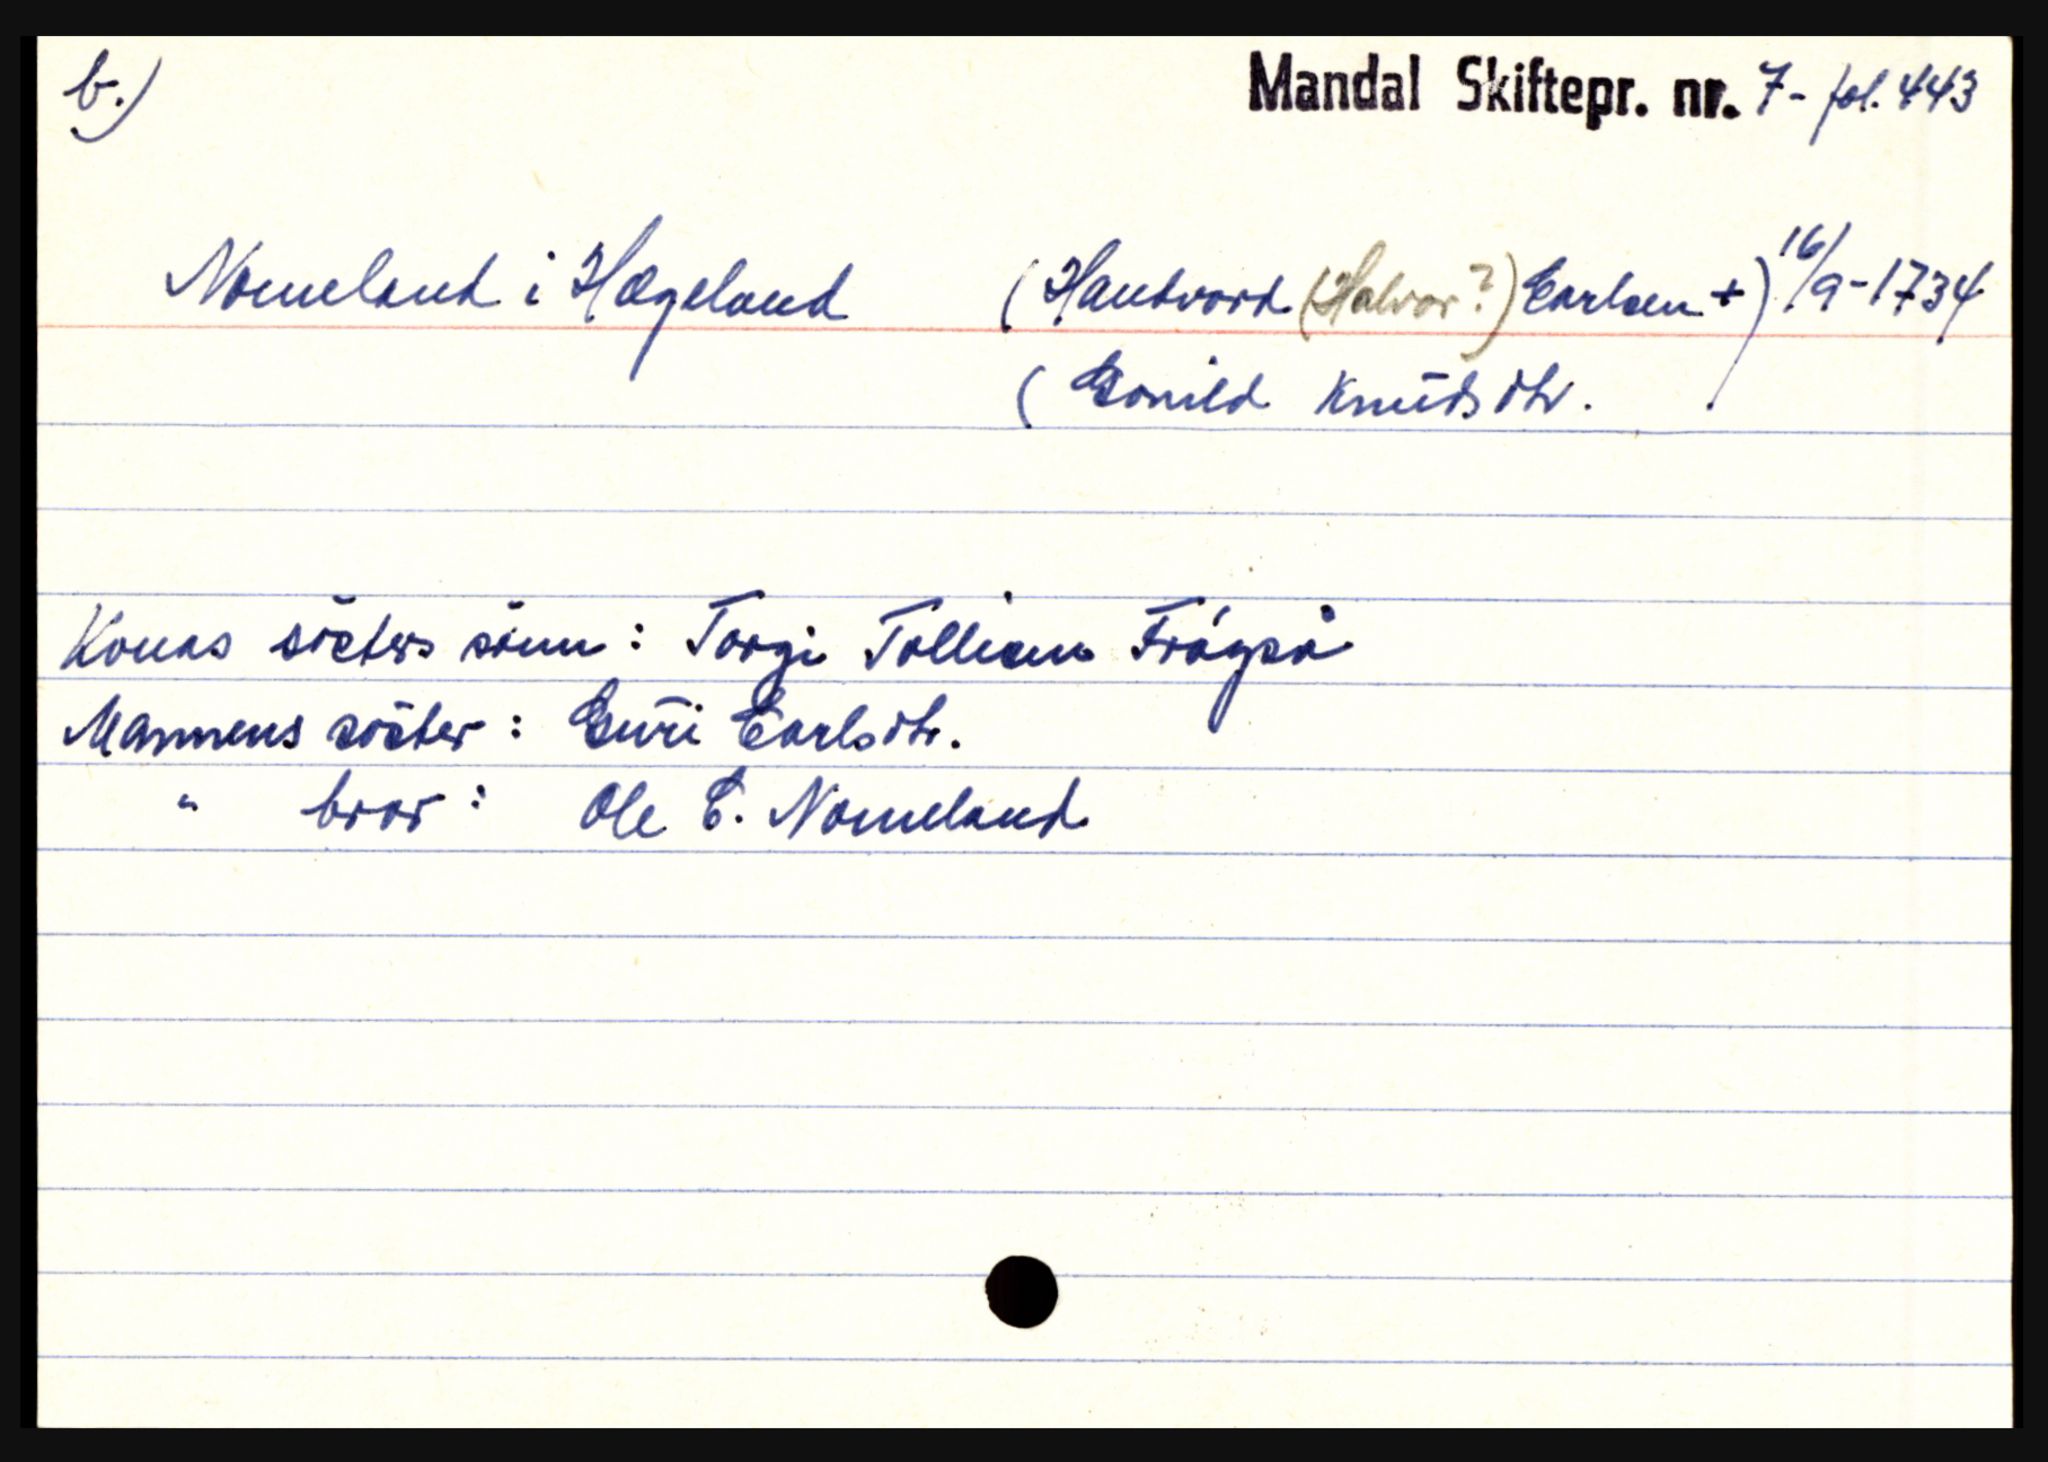 b.)
Mandal Skiftepr. nr. 7- fol. 443
Nomeland i Hægeland (Handvord (Halvor?) Earlsen +) 16/9-1734
(Gonild Knutsdtr.
Konas søsters sønn: Torgi Tollisen Frøyså
Mannens søster: Guri Earlsdtr.
" bror: Ole E. Nomeland